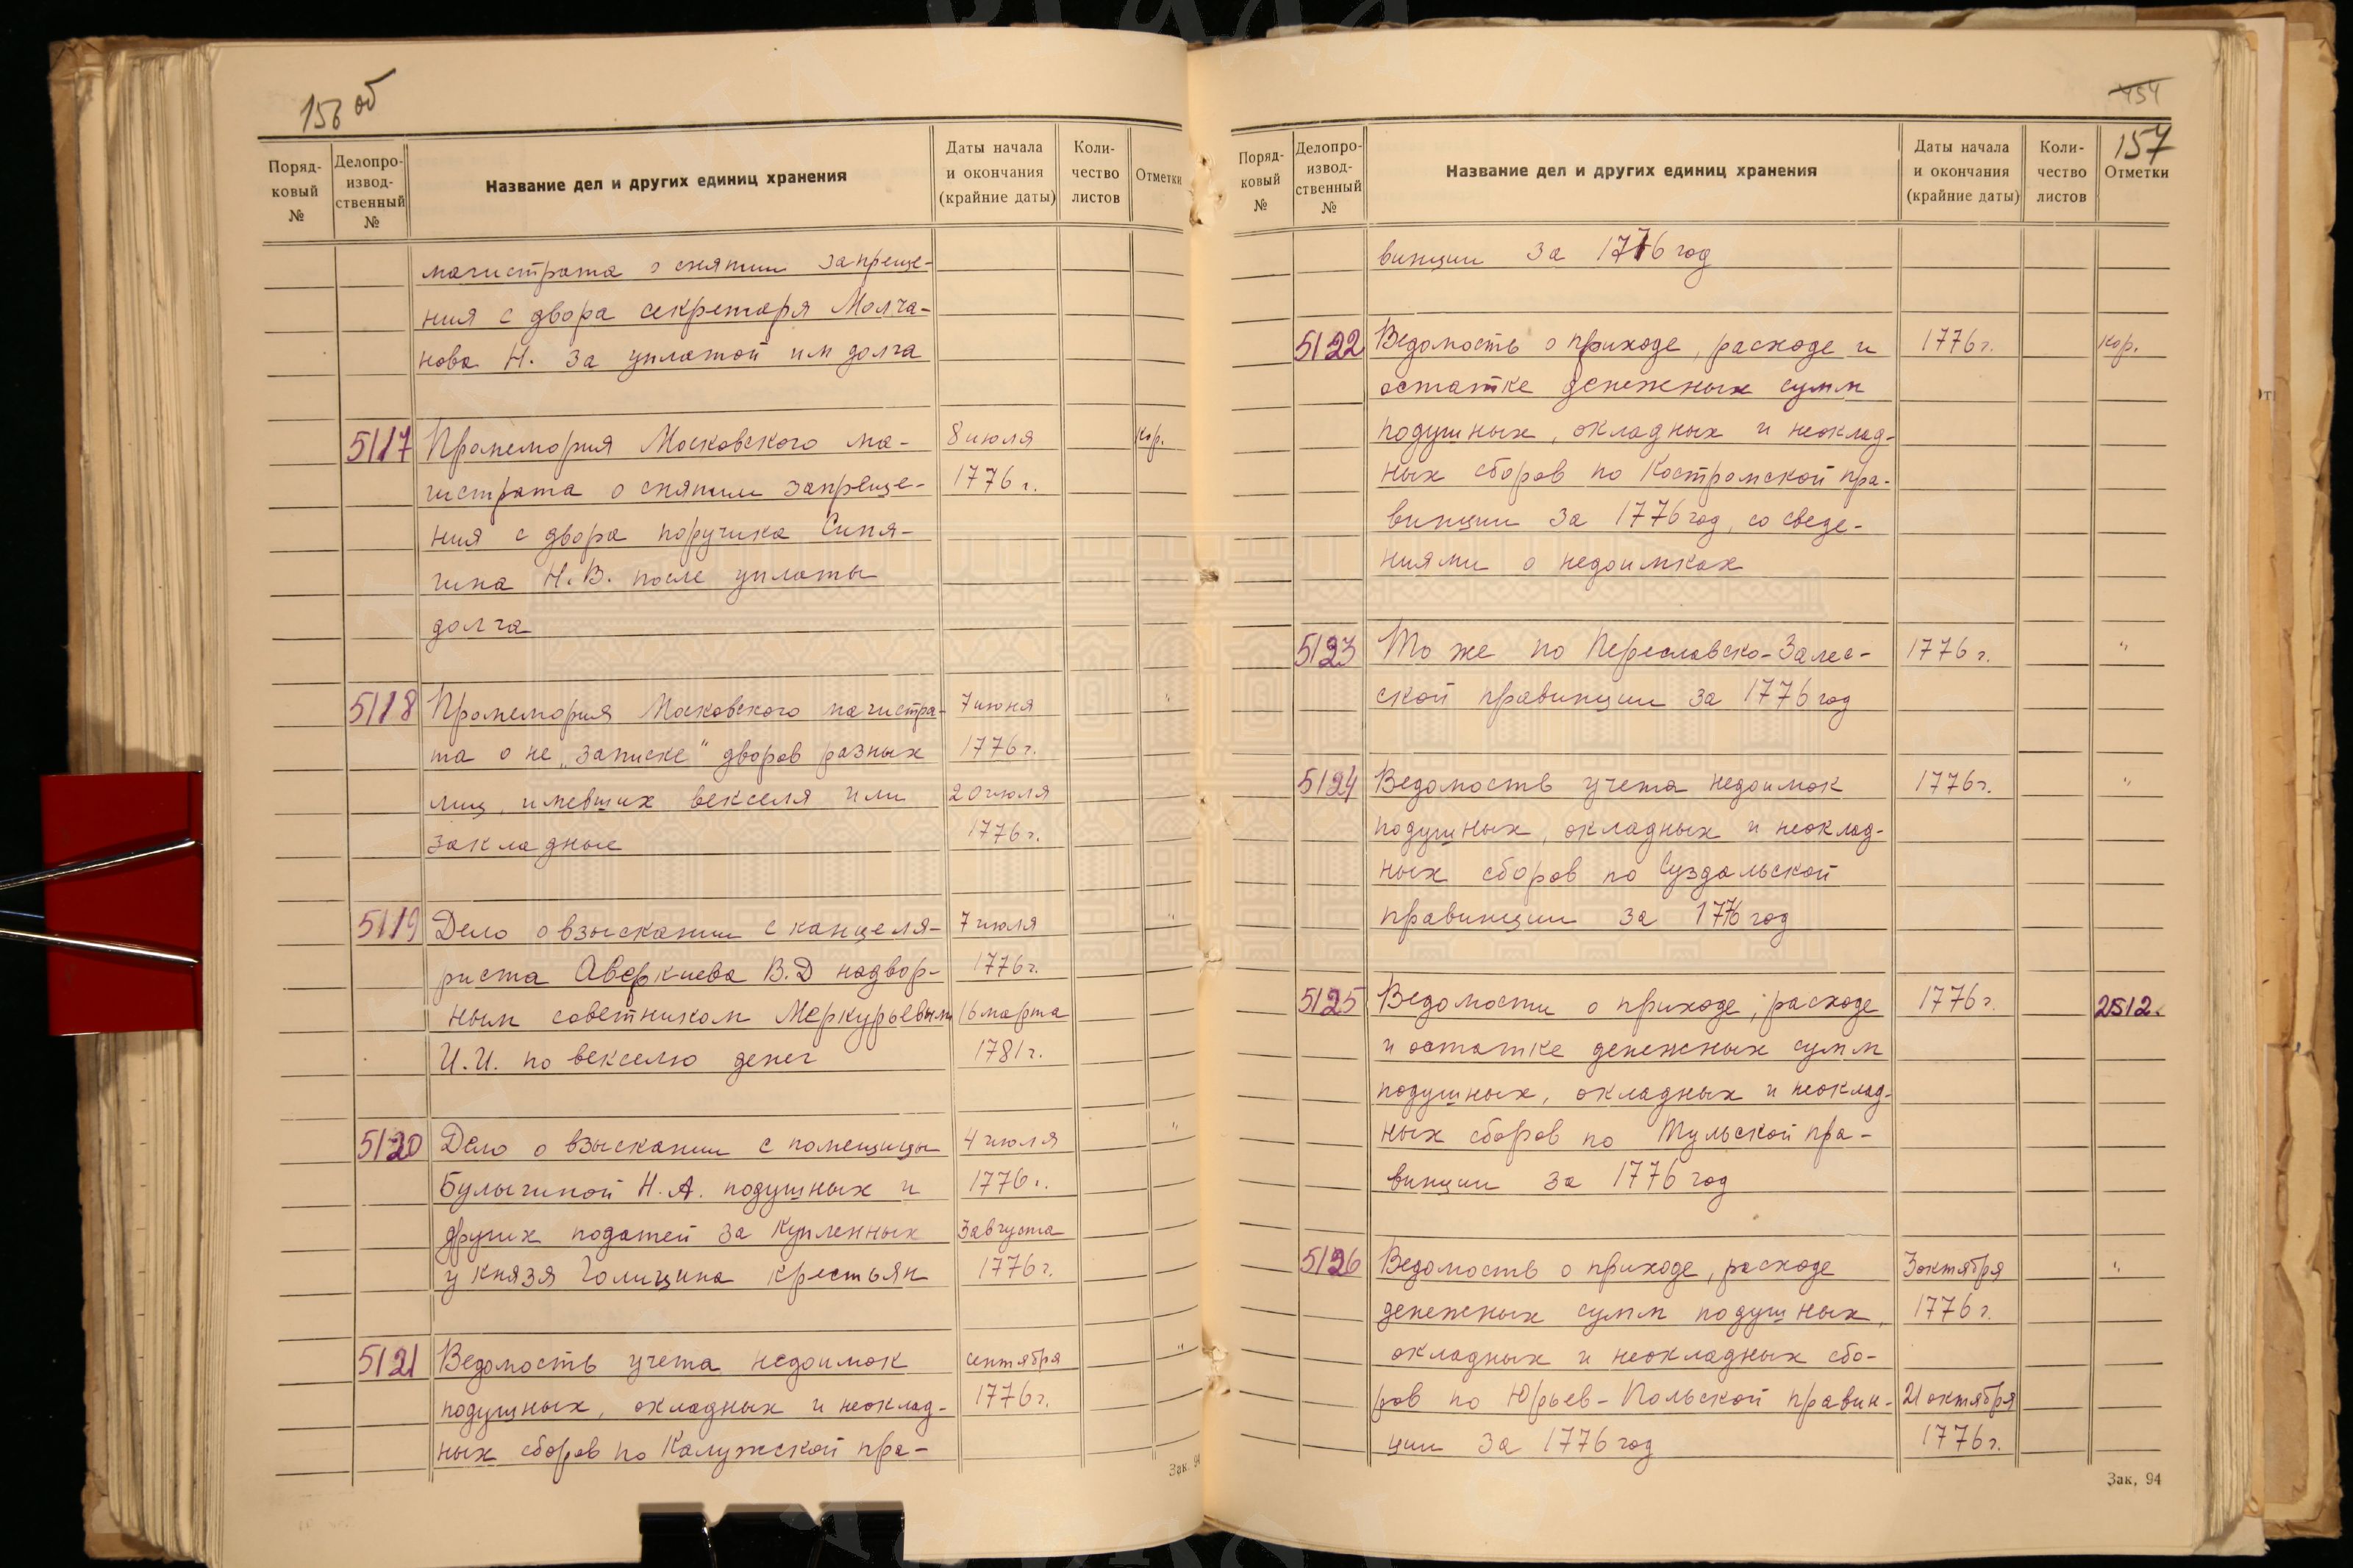 156 об
Поряд-
ковый
№
Делопро-
извод-
ственный
№
Название дел и других единиц хранения
Даты начала
и окончания
(крайние даты)
Коли-
чество
листов
Отметки
магистрата о снятии запреще-
ния с двора секретаря Молча-
нова Н. за уплатой им долга
5117 Промемория Московского ма- 8 июля кор.
гистрата о снятии запреще- 1776 г.
ния с двора поручика Синя-
гина Н.В. после уплаты
долга
5118 Промемория Московского магистра- 7 июня "
та о не „записке" дворов разных 1776 г.
лиц, имевших векселя или 20 июля
закладные 1776 г.
5119 Дело о взыскании с канцеля- 7 июля "
риста Аверкиева В.Д надвор- 1776 г.
ным советником Меркурьевым 16 марта
И.И. по векселю денег 1781 г.
5120 Дело о взыскании с помещицы 4 июля "
Булыгиной Н.А. подушных и 1776 г.
других податей за купленных 3 августа
у князя Голицина крестьян 1776 г.
5121 Ведомость учета недоимок сентября "
подушных, окладных и неоклад- 1776 г.
ных сборов по Калужской пра-
Зак. 94
454
157
Поряд-
ковый
№
Делопро-
извод-
ственный
№
Название дел и других единиц хранения
Даты начала
и окончания
(крайние даты)
Коли-
чество
листов
Отметки
винции за 1776 год
5122 Ведомость о приходе, расходе и 1776 г. кор.
остатке денежных сумм
подушных, окладных и неоклад-
ных сборов по Костромской пра-
винции за 1776 год, со сведе-
ниями о недоимках
5123 То же по Переславско-Залес- 1776 г. "
ской правинции за 1776 год
5124 Ведомость учета недоимок 1776 г. "
подушных, окладных и неоклад-
ных сборов по Суздальской
правинции за 1776 год
5125 Ведомости о приходе, расходе 1776 г.
и остатке денежных сумм
подушных, окладных и неоклад-
ных сборов по Тульской пра-
винции за 1776 год
5126 Ведомость о приходе, расходе 3 октября "
денежных сумм подушных, 1776 г.
окладных и неокладных сбо-
ров по Юрьев-Польской правин- 21 октября
ции за 1776 год 1776 г.
Зак. 94